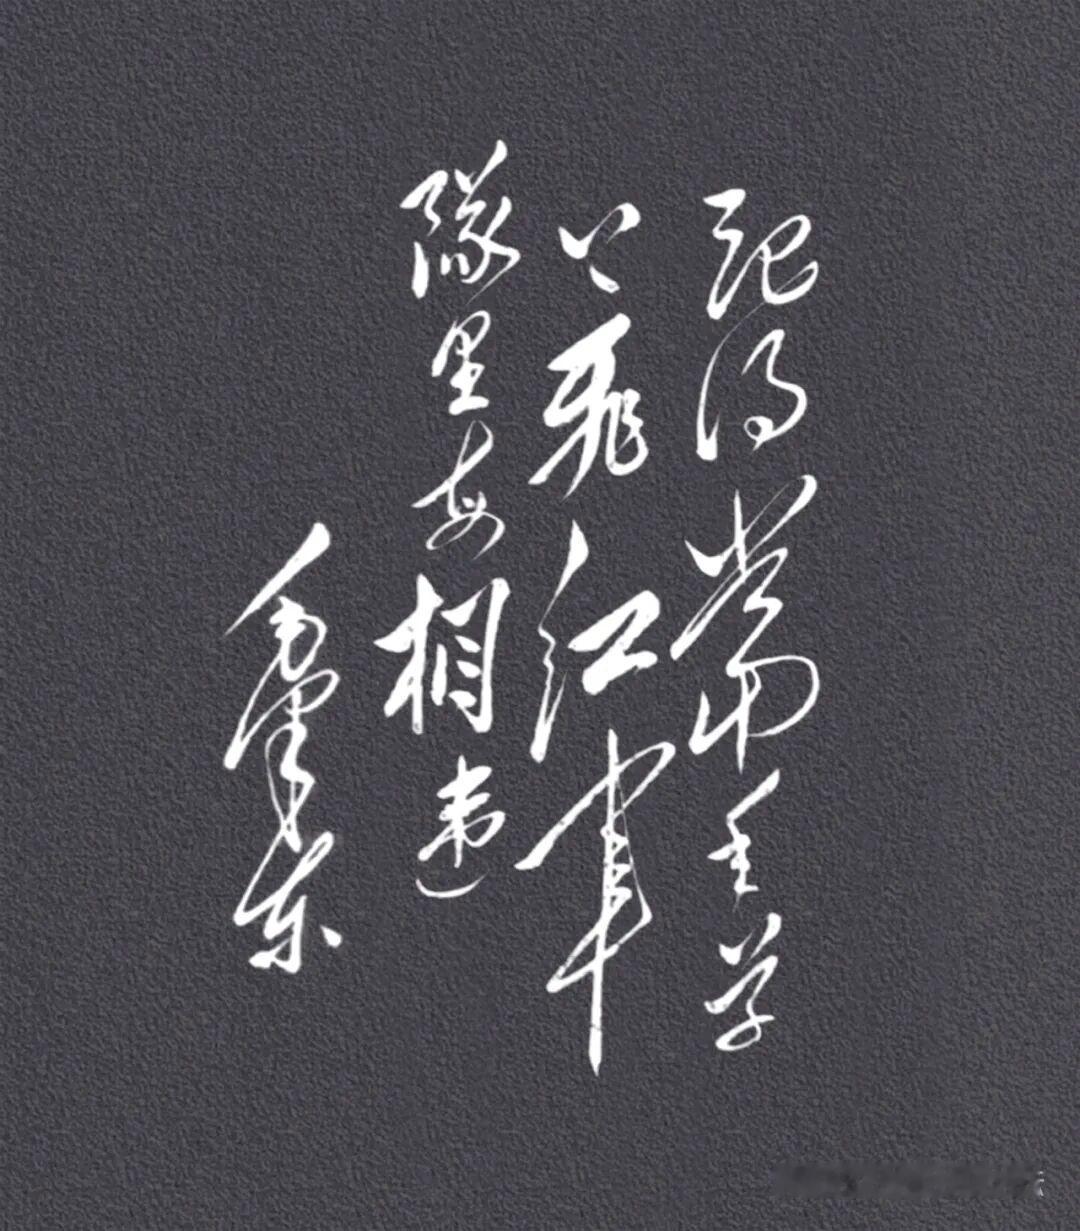 記得當年草
上飛紅軍
隊里每相違
毛澤東